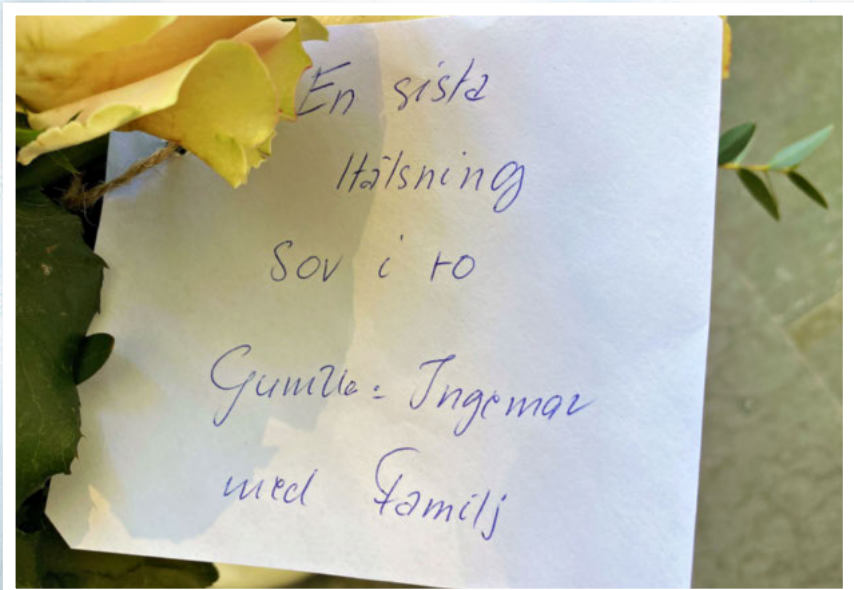 En sista
Hälsning
Sov i ro
Ingemar
med Familj